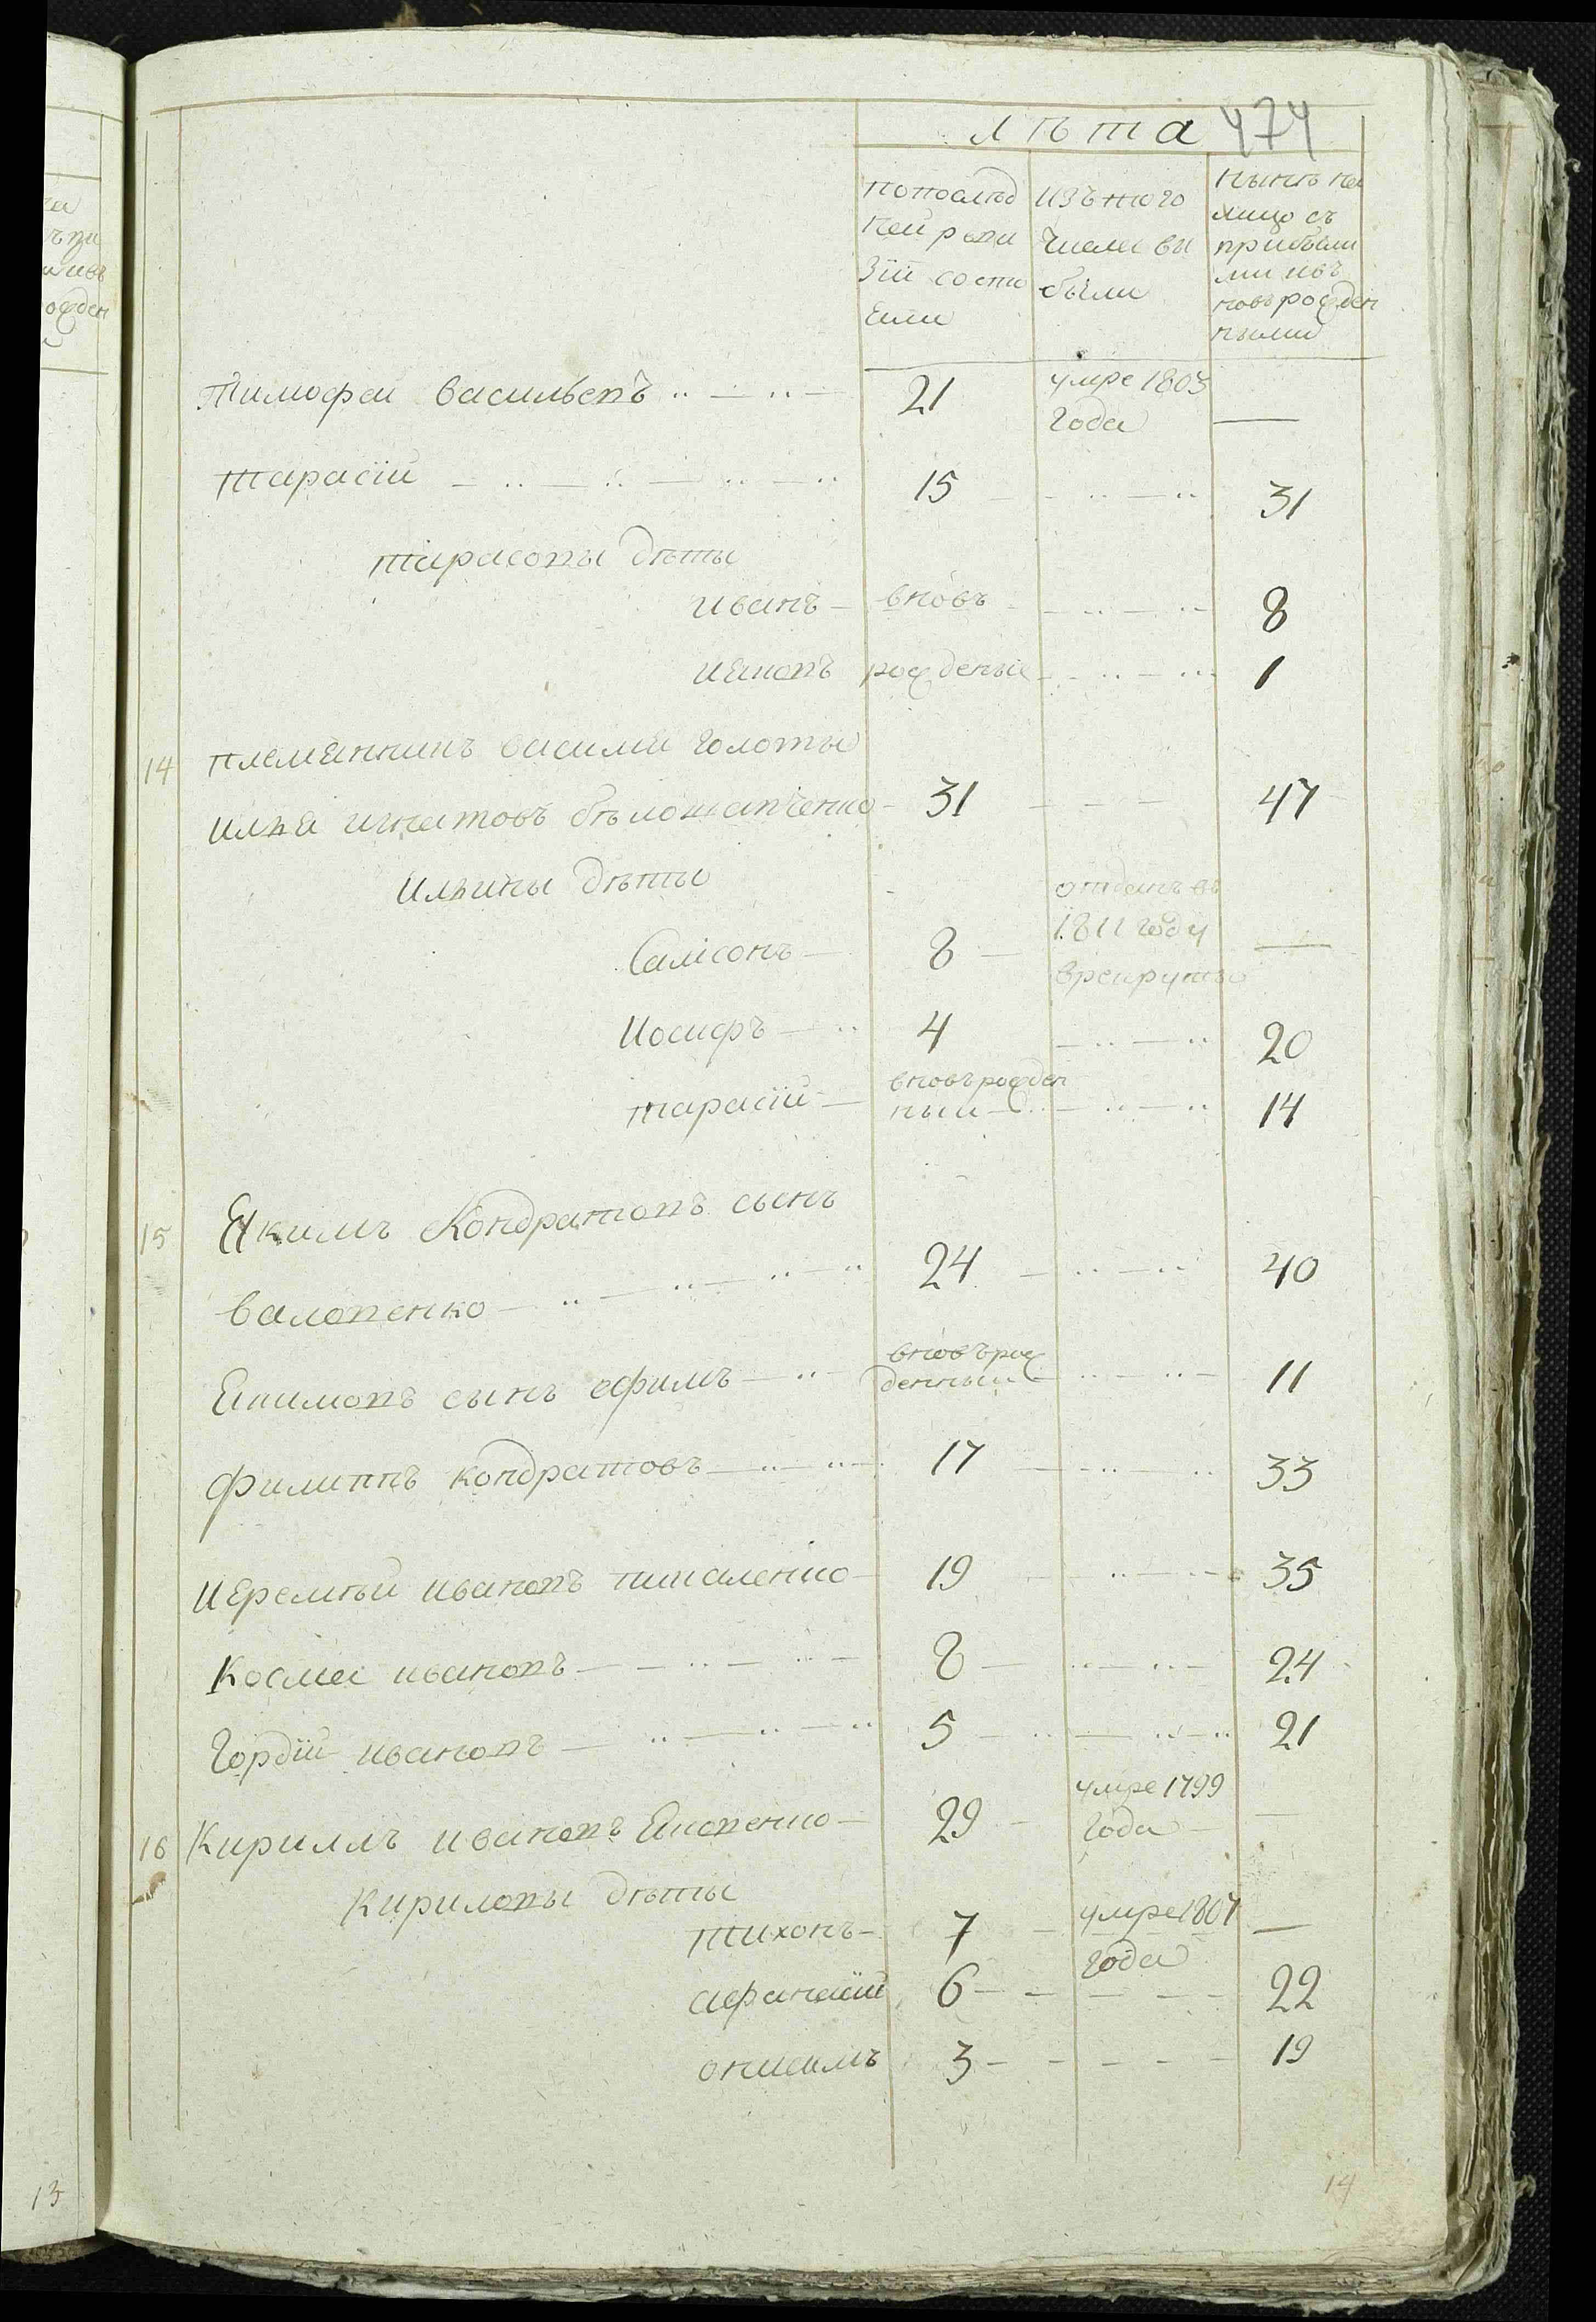 лѣта 474
попослѣд
ней реви
зіи состо
яли
изъ того
числа вы
были
нынѣ на
лицо съ
прибыли
ми изъ
новърожден
ными
Тимофеи васильевъ 21 умре 1803
года —
тарасіи 15 31
тарасовы дѣты
иванъ вновъ 8
рожденые 1
14 племянникъ василия голоты
илия игнатовъ 31 47
илины дѣты
отданъ въ
Самсонъ 8 1811 году —
врекруты
Иосифъ 4 20
тарасіи вновърожден
ныи 14
15 Якимъ Кондратовъ сынъ
валовенко 24 40
Якимовъ сынъ ефимъ вновърож
денныи 11
Филиппъ кондратовъ 17 33
Иеремѣи ивановъ 19 35
Косма ивановъ 8 24
Гордіи ивановъ 5 21
16 Кириллъ ивановъ Яковенко 29 умре 1799
года —
Кириловы дѣты
тихонъ 7 умре 1807
года —
афанасіи 6 22
онисимъ 3 19
13
14